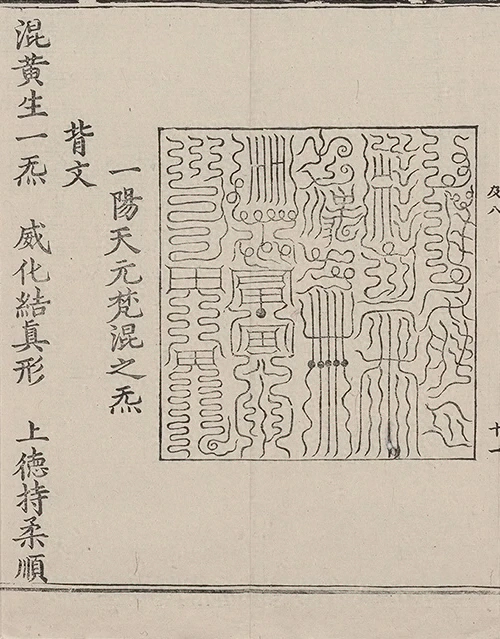 十一
一陽天元梵混之炁
背文
混黄生一炁　威化結真形　上德持柔順